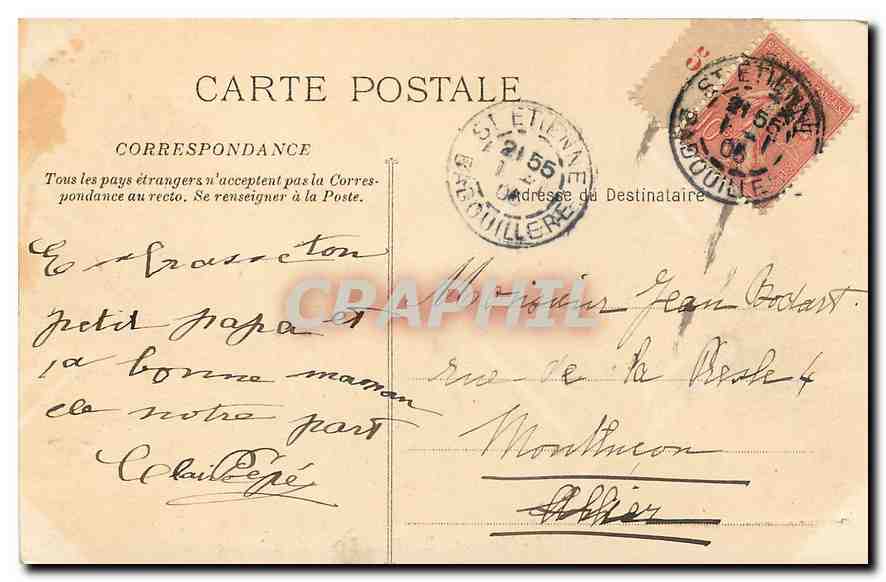 CARTE POSTALE
5
ST ETIENNE
21 55
BADOUILLERE
ST ETIENNE
21 55
BADOUILLE
CORRESPONDANCE
Tous les pays étrangers n'acceptent pas la Corres-
pondance au recto. Se renseigner à la Poste.
Adresse du Destinataire
Embrasse ton
petit papa et
ta bonne maman
de notre part
Pépé
Monsieur Jean Bodart
rue de la Presle 4
Montluçon
Allier
CPAPHIL